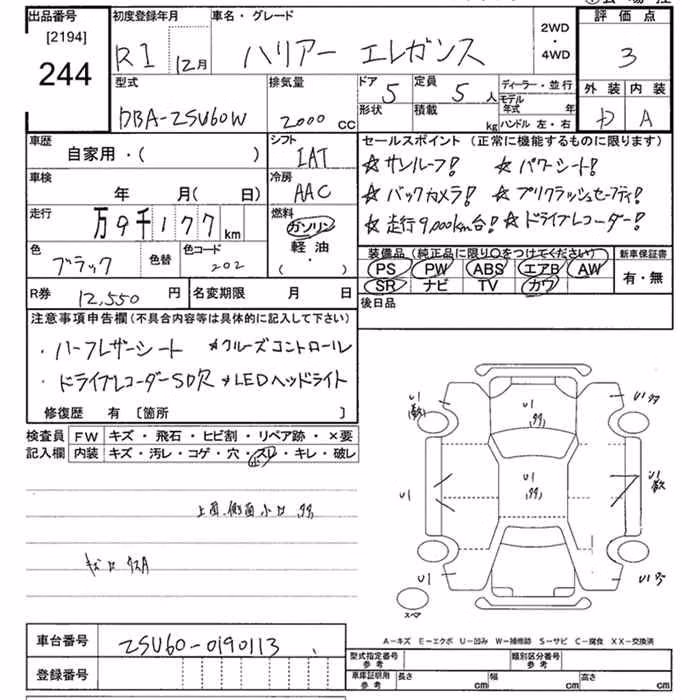 出品番号 初度登録年月 車名・グレード 評価点
[2194]
244
R1 12月 ハリアー エレガンス 2WD ・ 4WD 3
型式 排気量 ドア 定員 ディーラー・並行 外装 内装
DBA-ZSU60W 2000 CC 5 5人 モデル年式 年 D A
形状 積載 kg ハンドル 左・右
車歴 シフト セールスポイント (正常に機能するものに限ります)
自家用・( ) IAT ☆サンルーフ! ☆パワーシート!
車検 冷房
年 月( 日) AAC ☆バックカメラ! ☆プリクラッシュセーフティ!
走行 燃料
万9千177km ガソリン ☆走行9,000km台! ☆ドライブレコーダー!
軽油
( ・ )
色 色替 色コード 装備品 (純正品に限り〇をつけてください) 新車保証書
ブラック 202 PS PW ABS エアB AW 有・無
SR ナビ TV カワ
R券 12,550円 名変期限 月 日 後日品
注意事項申告欄 (不具合内容等は具体的に記入して下さい)
・ハーフレザーシート ☆クルーズコントロール
・ドライブレコーダーSD欠 ☆LEDヘッドライト
修復歴 有 [箇所 ]
検査員 FW キズ・飛石・ヒビ割・リペア跡・×要
記入欄 内装 キズ・汚レ・コゲ・穴・スレ・キレ・破レ
U1
U1
U1
U1
U1
U1
U1
上面、側面小凹
スペア
A-キズ E-エクボ U-凹み W-補修跡 S-サビ C-腐食 XX-交換済
車台番号 ZSU60-0190113
型式指定番号 参考 類別区分番号 参考
登録番号
車庫証明用 参考 長さ cm 幅 cm 高さ cm